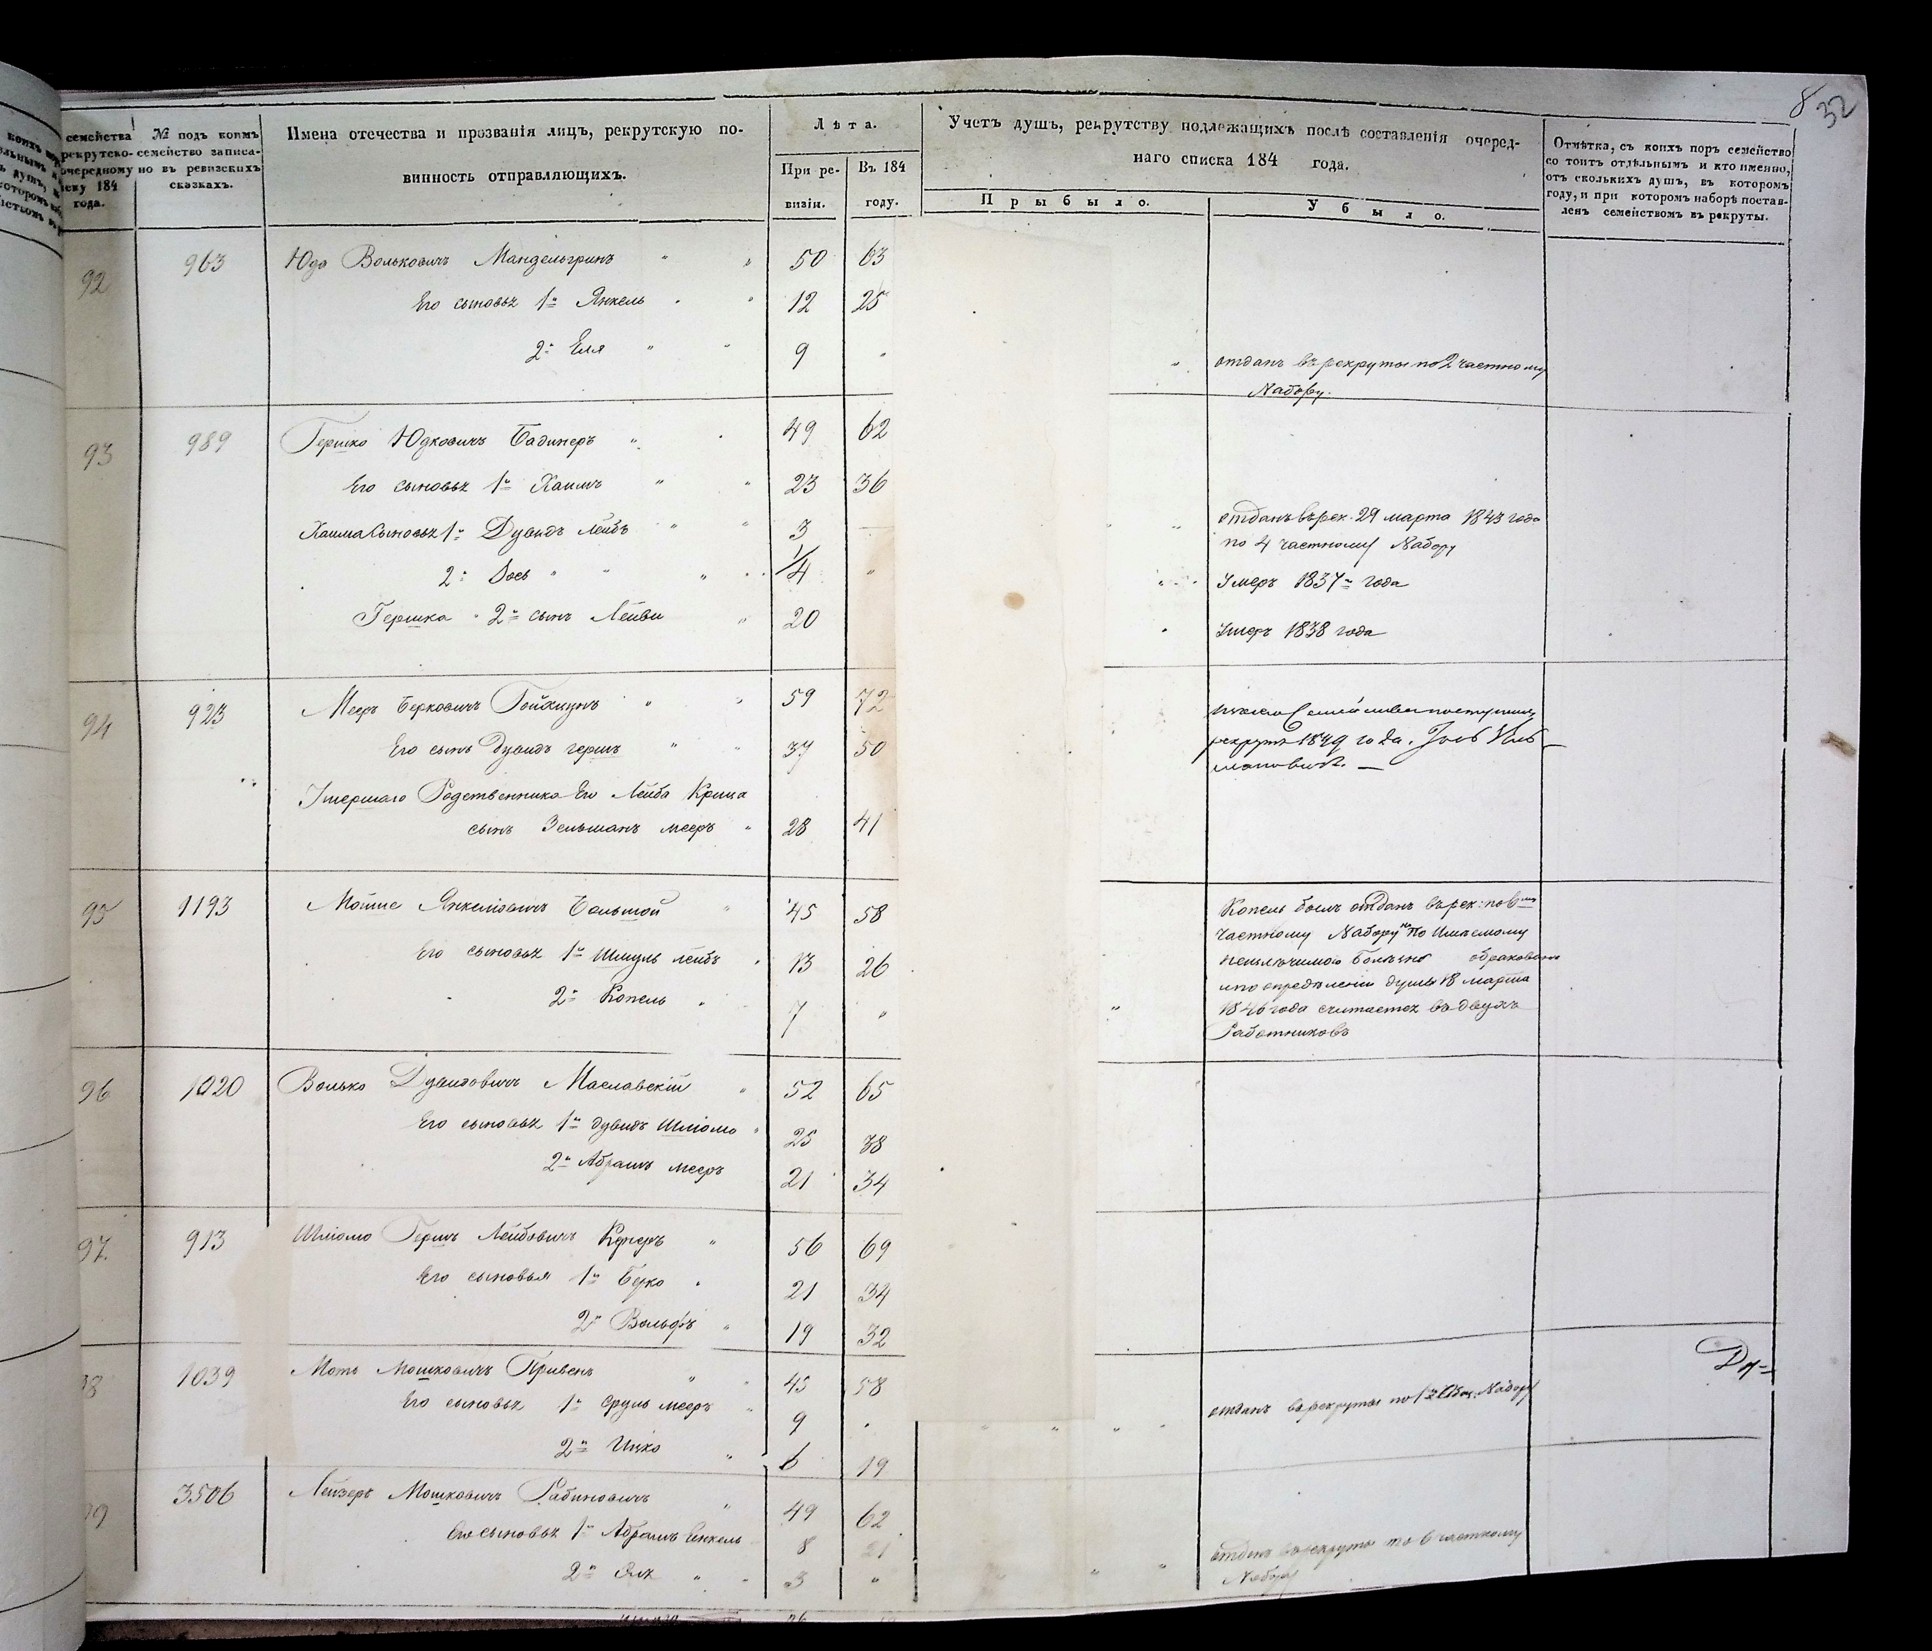 8 32
семейства
рекрутско-
очередному
184
года.
№ подъ коимъ
семейство записа-
но въ ревизскихъ
сказкахъ.
Имена отечества и прозванія лицъ, рекрутскую по-
винность отправляющихъ.
Лѣта.
При ре-
визіи.
Въ 184
году.
Учетъ душъ, рекрутству подлежащихъ послѣ составленія очеред-
наго списка 184 года.
Прыбыло.
Убыло.
Отмѣтка, съ коихъ поръ семейство
со тоитъ отдѣльнымъ и кто именно,
отъ сколькихъ душъ, въ которомъ
году, и при которомъ наборѣ постав-
ленъ семействомъ въ рекруты.
92 963 Юдо Вольковичъ Мандельгринъ " " 50 63
Его сыновья 1й Янкель " " 12 25
2й Еля " " 9 " " отданъ въ рекруты по 2 частному
Набору.
93 989 Гершко Юдковичъ Бадинеръ " 49 62
Его сыновья 1й Хаимъ " " 23 36
Хаима Сыновья 1й Дувидъ Лейбъ " " 3 — отданъ въ рек. 29 марта 1843 года
по 4 частному Набору
2й Іось " " " 1/4 " Умеръ 1837го года
Гершка 2й сынъ Лейви " 20 Умеръ 1838 года
94 923 Мееръ Берковичъ 59 72
Его сынъ Дувидъ гершъ " " 37 50
рекрутъ 1849 года.
Умершаго Родственника Его Лейба Крица
сынъ Зельманъ мееръ " 28 41
95 1193 Мошие Янкелювичъ Большой " 45 58
Его сыновья 1й Шмуль лейбъ 13 26
2й Копель " 7 "
Копель былъ отданъ въ рек: по 6му
частному Набору но по
обракованъ
и по опредѣленію думы 18 марта
1846 года считается въ двухъ
Работниковъ
96 1020 Волько Дувидовичъ Маславскій " 52 65
Его сыновья 1й дувидъ Шліомо " 25 38
2й Абрамъ мееръ 21 34
97. 913 Шліомо Гершъ Лейбовичъ " 56 69
Его сыновья 1й Берко " 21 34
2й Вольфъ " 19 32
8 1039 Моть Мошковичъ Привенъ " " 45 58
Его сыновья 1й Сруль мееръ " 9 " отданъ въ рекруты по Набору
2й Ицко " 6 19
9 3506 Лейзеръ Мошковичъ Рабиновичъ " 49 62
Его сыновья 1й Абрамъ Янкель 8 21 отданъ въ рекруты по 6 частному
Набору
2й " " 3 "